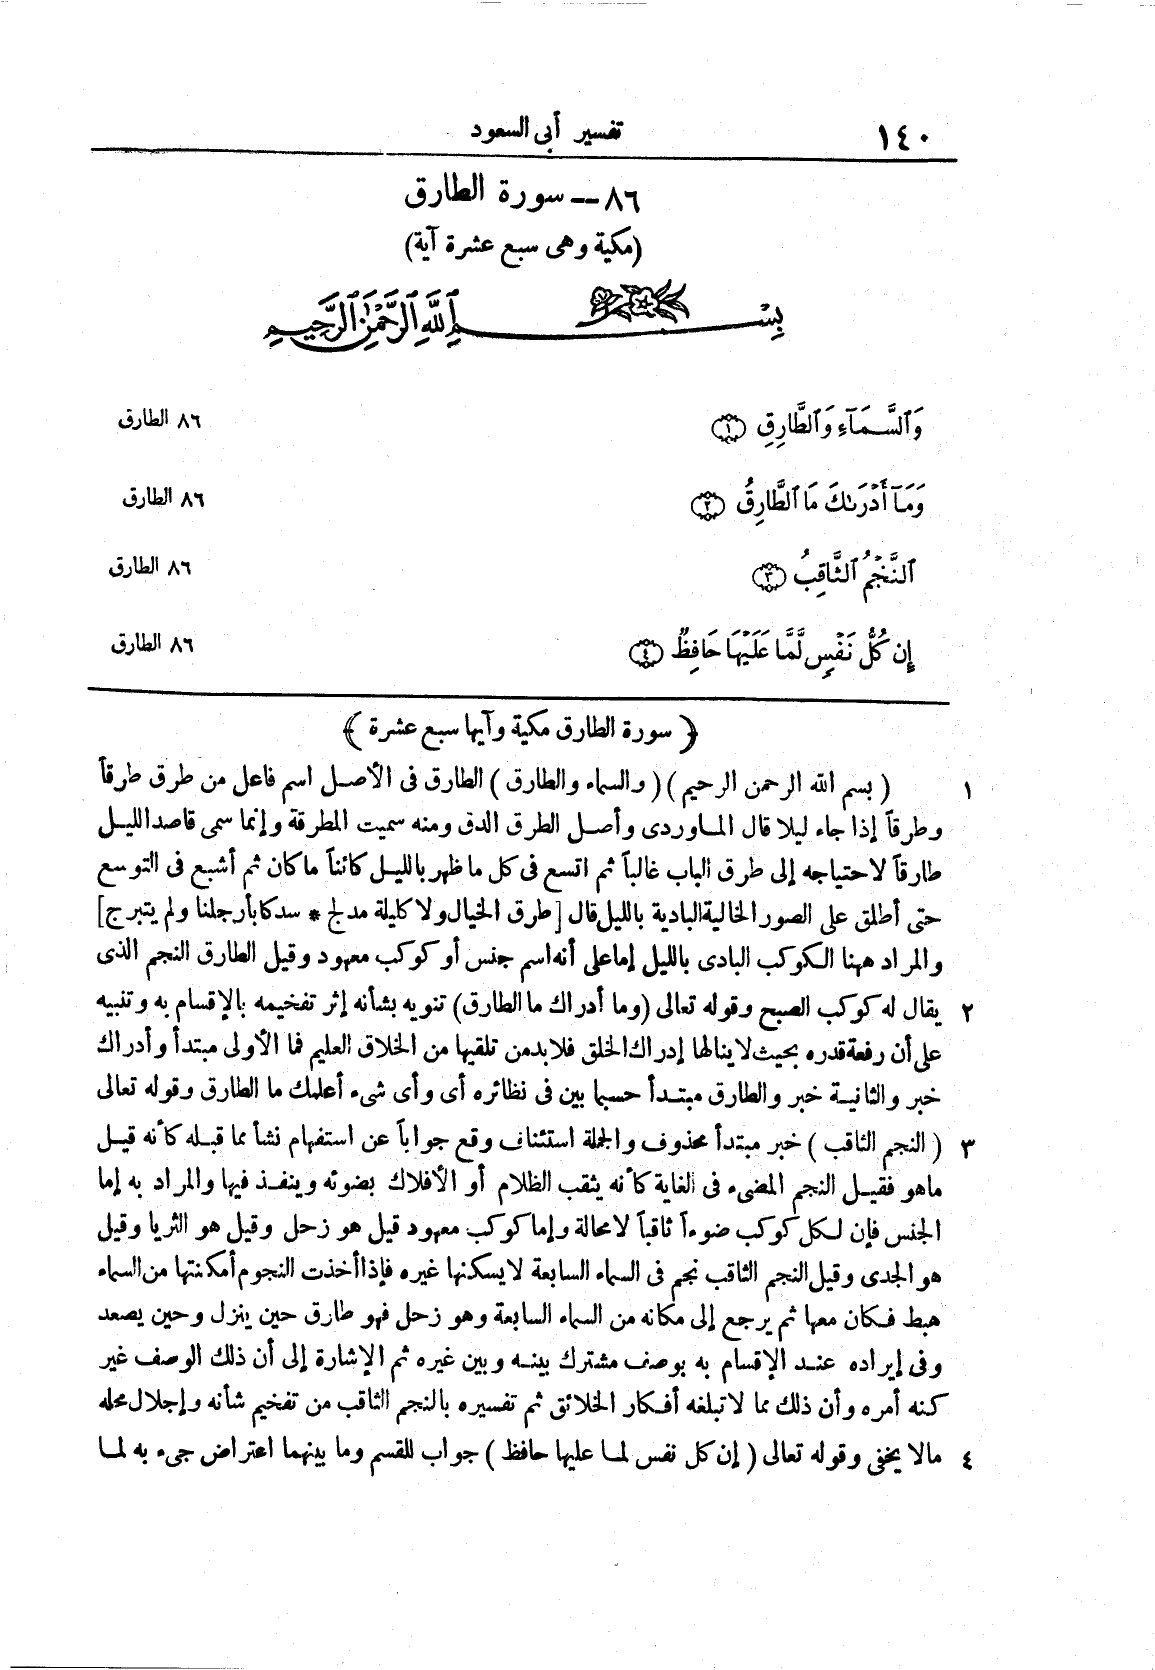 ١٤٠ تفسير أبى السعود
٨٦ -- سورة الطارق
(مكية وهى سبع عشرة آية)
بِسْمِ ٱللَّهِ ٱلرَّحْمَٰنِ ٱلرَّحِيمِ
وَٱلسَّمَآءِ وَٱلطَّارِقِ ﴿١﴾ ٨٦ الطارق
وَمَآ أَدْرَىٰكَ مَا ٱلطَّارِقُ ﴿٢﴾ ٨٦ الطارق
ٱلنَّجْمُ ٱلثَّاقِبُ ﴿٣﴾ ٨٦ الطارق
إِن كُلُّ نَفْسٍ لَّمَّا عَلَيْهَا حَافِظٌ ﴿٤﴾ ٨٦ الطارق
﴿ سورة الطارق مكية وآيها سبع عشرة ﴾
١ ( بسم الله الرحمن الرحيم ) ( والسماء والطارق ) الطارق فى الأصل اسم فاعل من طرق طرقاً
وطرقاً إذا جاء ليلا قال الماوردى وأصل الطرق الدق ومنه سميت المطرقة وإنما سمى قاصد الليل
طارقاً لاحتياجه إلى طرق الباب غالباً ثم اتسع فى كل ما ظهر بالليل كائناً ما كان ثم أشبع فى التوسع
حتى أطلق على الصور الخالية البادية بالليل قال [ طرق الخيال ولا كليلة مدلج * سدكا بأرجلنا ولم يتبرج ]
والمراد ههنا الكوكب البادى بالليل إما على أنه اسم جنس أو كوكب معهود وقيل الطارق النجم الذى
٢ يقال له كوكب الصبح وقوله تعالى (وما أدراك ما الطارق) تنويه بشأنه إثر تفخيمه بالإقسام به وتنبيه
على أن رفعة قدره بحيث لا ينالها إدراك الخلق فلا بد من تلقيها من الخلاق العليم فما الأولى مبتدأ وأدراك
خبر والثانية خبر والطارق مبتدأ حسبما بين فى نظائره أى وأى شىء أعلمك ما الطارق وقوله تعالى
٣ ( النجم الثاقب ) خبر مبتدأ محذوف والجملة استئناف وقع جواباً عن استفهام نشأ مما قبله كأنه قيل
ما هو فقيل النجم المضىء فى الغاية كأنه يثقب الظلام أو الأفلاك بضوئه وينفذ فيها والمراد به إما
الجنس فإن لكل كوكب ضوءاً ثاقباً لا محالة وإما كوكب معهود قيل هو زحل وقيل هو الثريا وقيل
هو الجدى وقيل النجم الثاقب نجم فى السماء السابعة لا يسكنها غيره فإذا أخذت النجوم أمكنتها من السماء
هبط فكان معها ثم يرجع إلى مكانه من السماء السابعة وهو زحل فهو طارق حين ينزل وحين يصعد
وفى إيراده عند الإقسام به بوصف مشترك بينه وبين غيره ثم الإشارة إلى أن ذلك الوصف غير
كنه أمره وأن ذلك مما لا تبلغه أفكار الخلائق ثم تفسيره بالنجم الثاقب من تفخيم شأنه وإجلال محله
٤ مالا يخفى وقوله تعالى ( إن كل نفس لما عليها حافظ ) جواب للقسم وما بينهما اعتراض جىء به لما